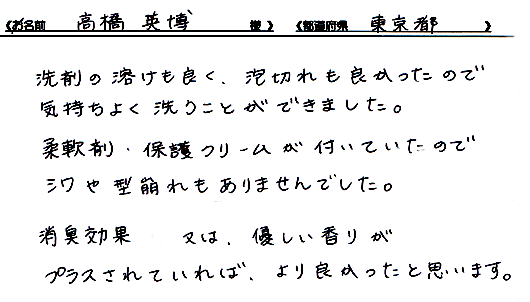 《お名前 高橋 英博 様》 《都道府県 東京都 》
洗剤の溶けも良く、泡切れも良かったので
気持ちよく洗うことができました。
柔軟剤・保護クリームが付いていたので
シワや型崩れもありませんでした。
消臭効果 又は、優しい香りが
プラスされていれば、より良かったと思います。